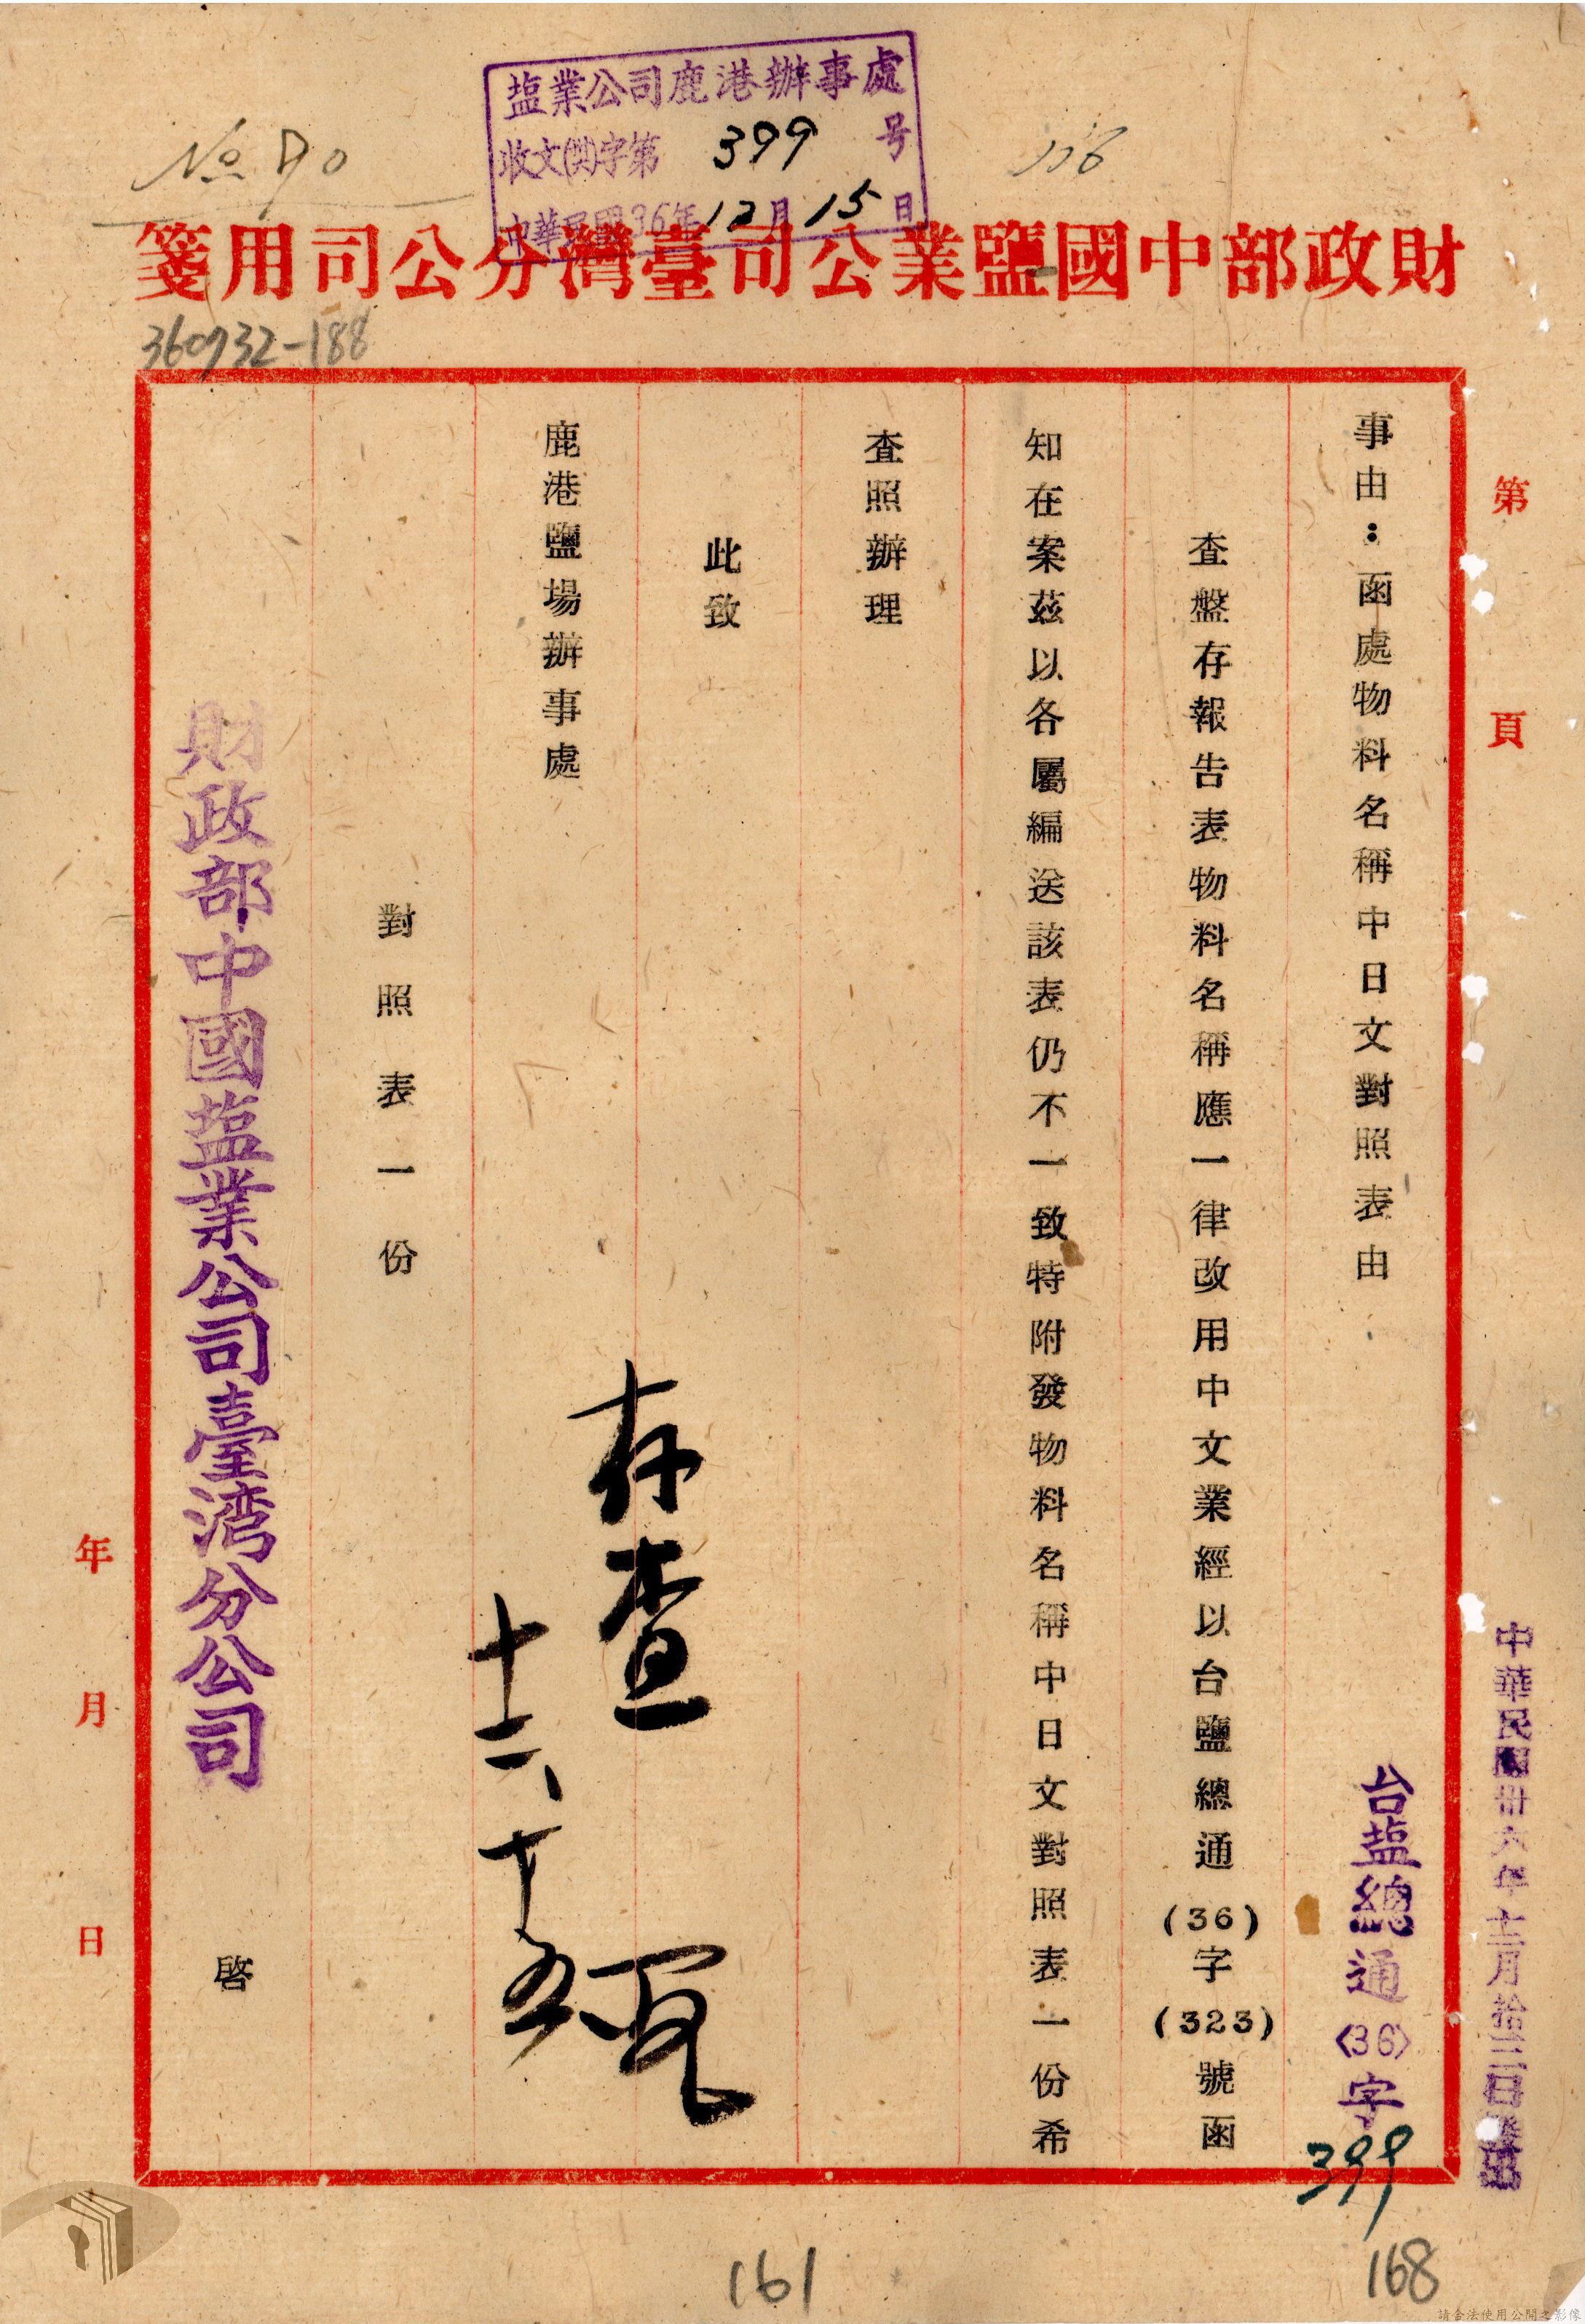 塩業公司鹿港辦事處
收文(卅)字第399号
中華民國36年12月15日
No 90
財政部中國鹽業公司臺灣分公司用箋
360932-188
第 頁
中華民國卅六年十二月拾三日發出
台塩總通<36>字399
事由：函處物料名稱中日文對照表由
查盤存報告表物料名稱應一律改用中文業經以台鹽總通(36)字(323)號函
知在案茲以各屬編送該表仍不一致特附發物料名稱中日文對照表一份希
查照辦理
此致
鹿港鹽場辦事處
存查
十二、十五
對照表一份
財政部中國塩業公司臺湾分公司 啓
年 月 日
161
168
請合法使用公開之影像